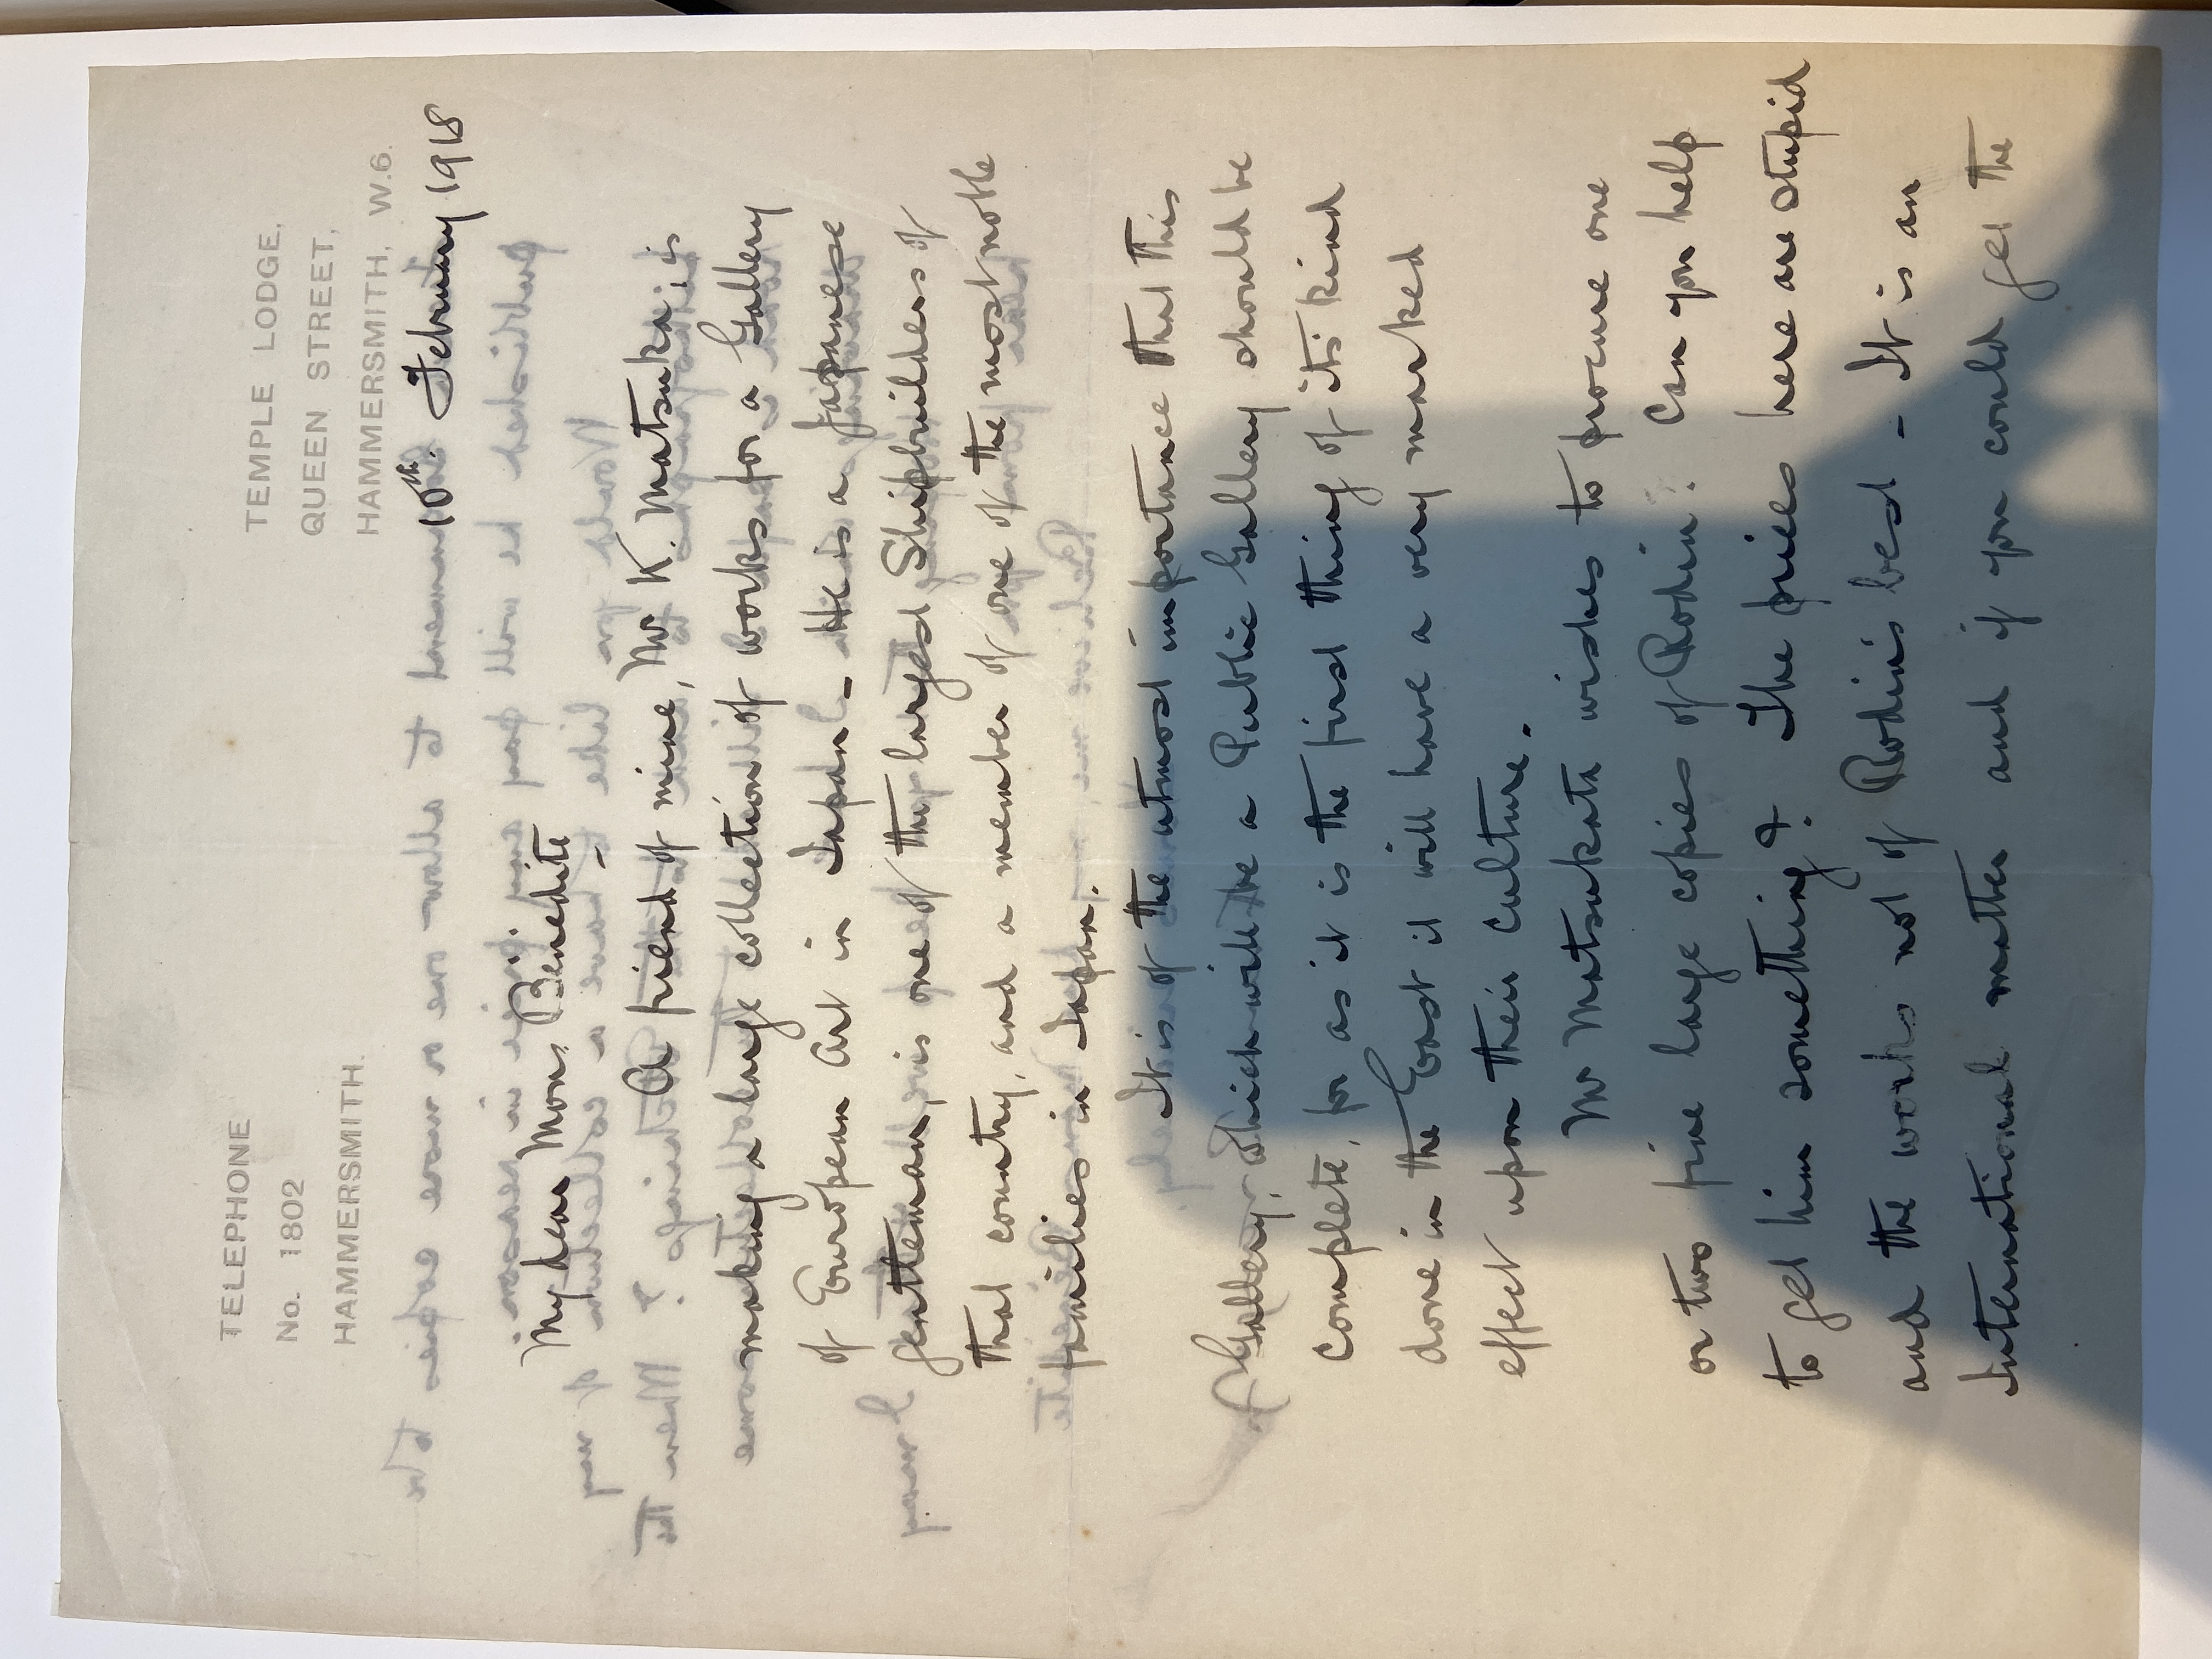 TELEPHONE
No. 1802
HAMMERSMITH.
TEMPLE LODGE,
QUEEN STREET,
HAMMERSMITH, W.6.
10th. February 1918
My dear Mons. Bénédite
A friend of mine, Mr K. Matsukata, is
making a large collection of works for a Gallery
of European Art in Japan - He is a Japanese
gentleman, is one of the largest Shipbuilders of
that country, and a member of one of the most noble
families in Japan.
It is of the utmost importance that this
Gallery, which will be a Public Gallery should be
complete, for as it is the first thing of its kind
done in the East it will have a very marked
effect upon their culture.
Mr Matsukata wishes to procure one
or two fine large copies of Rodin. Can you help
to get him something? The prices here are stupid
and the works not of Rodin's best - It is an
International matter and if you could get the